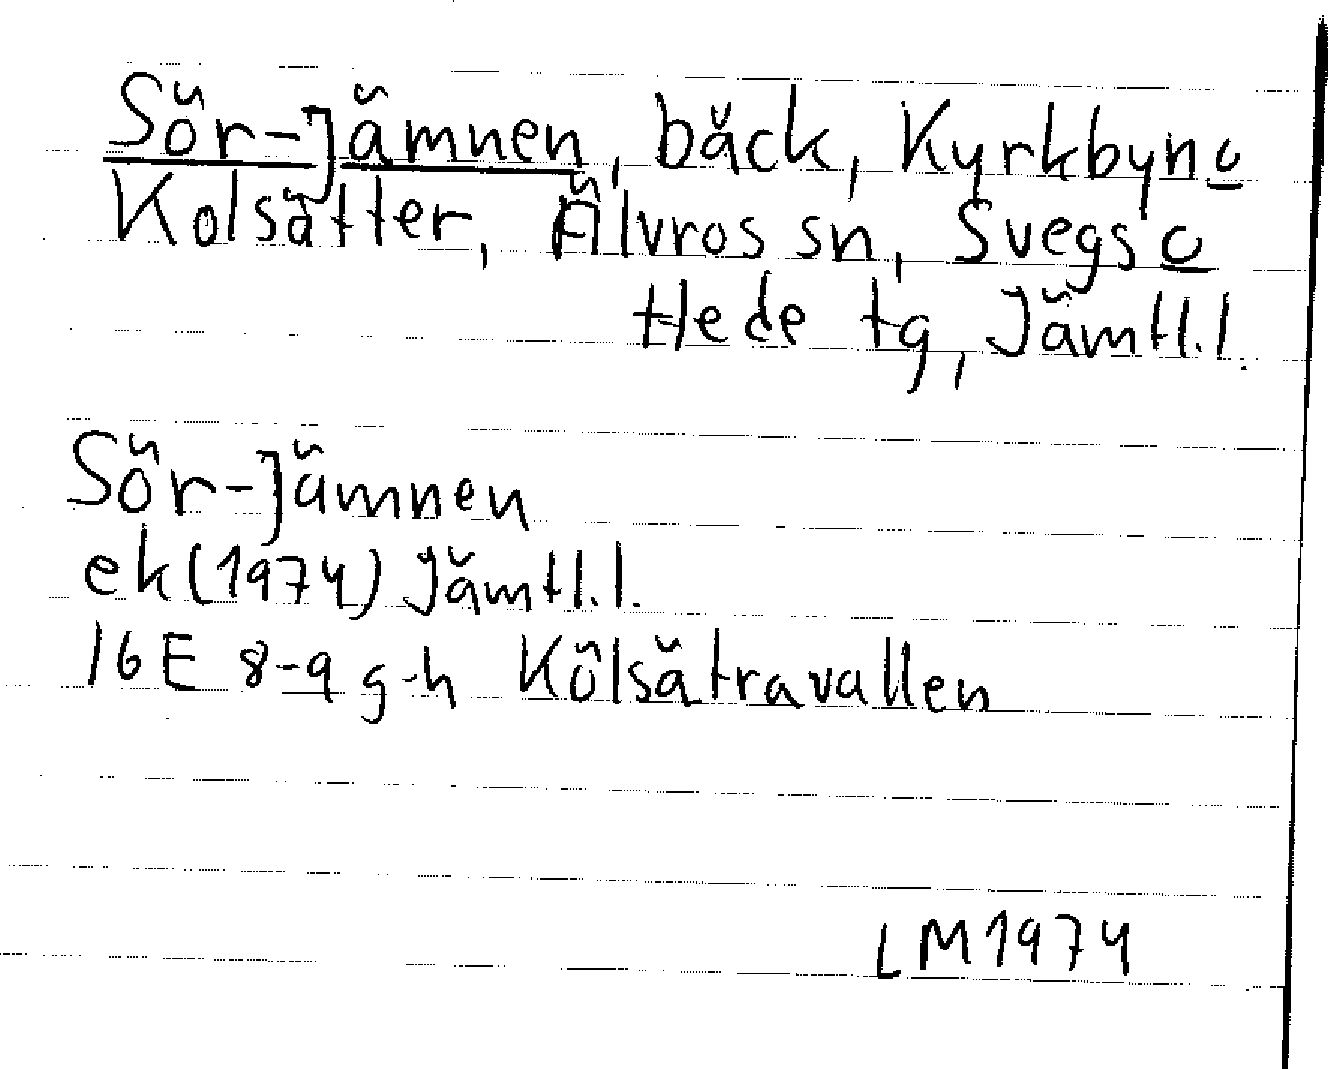 Sör-Jämnen, bäck, Kyrkbyn o
Kolsätter, Älvros sn, Svegs o
Hede tg, Jämtl.l.
Sör-Jämnen
ek (1974) Jämtl.l.
16E 8-9 g-h Kölsätravallen
LM 1974